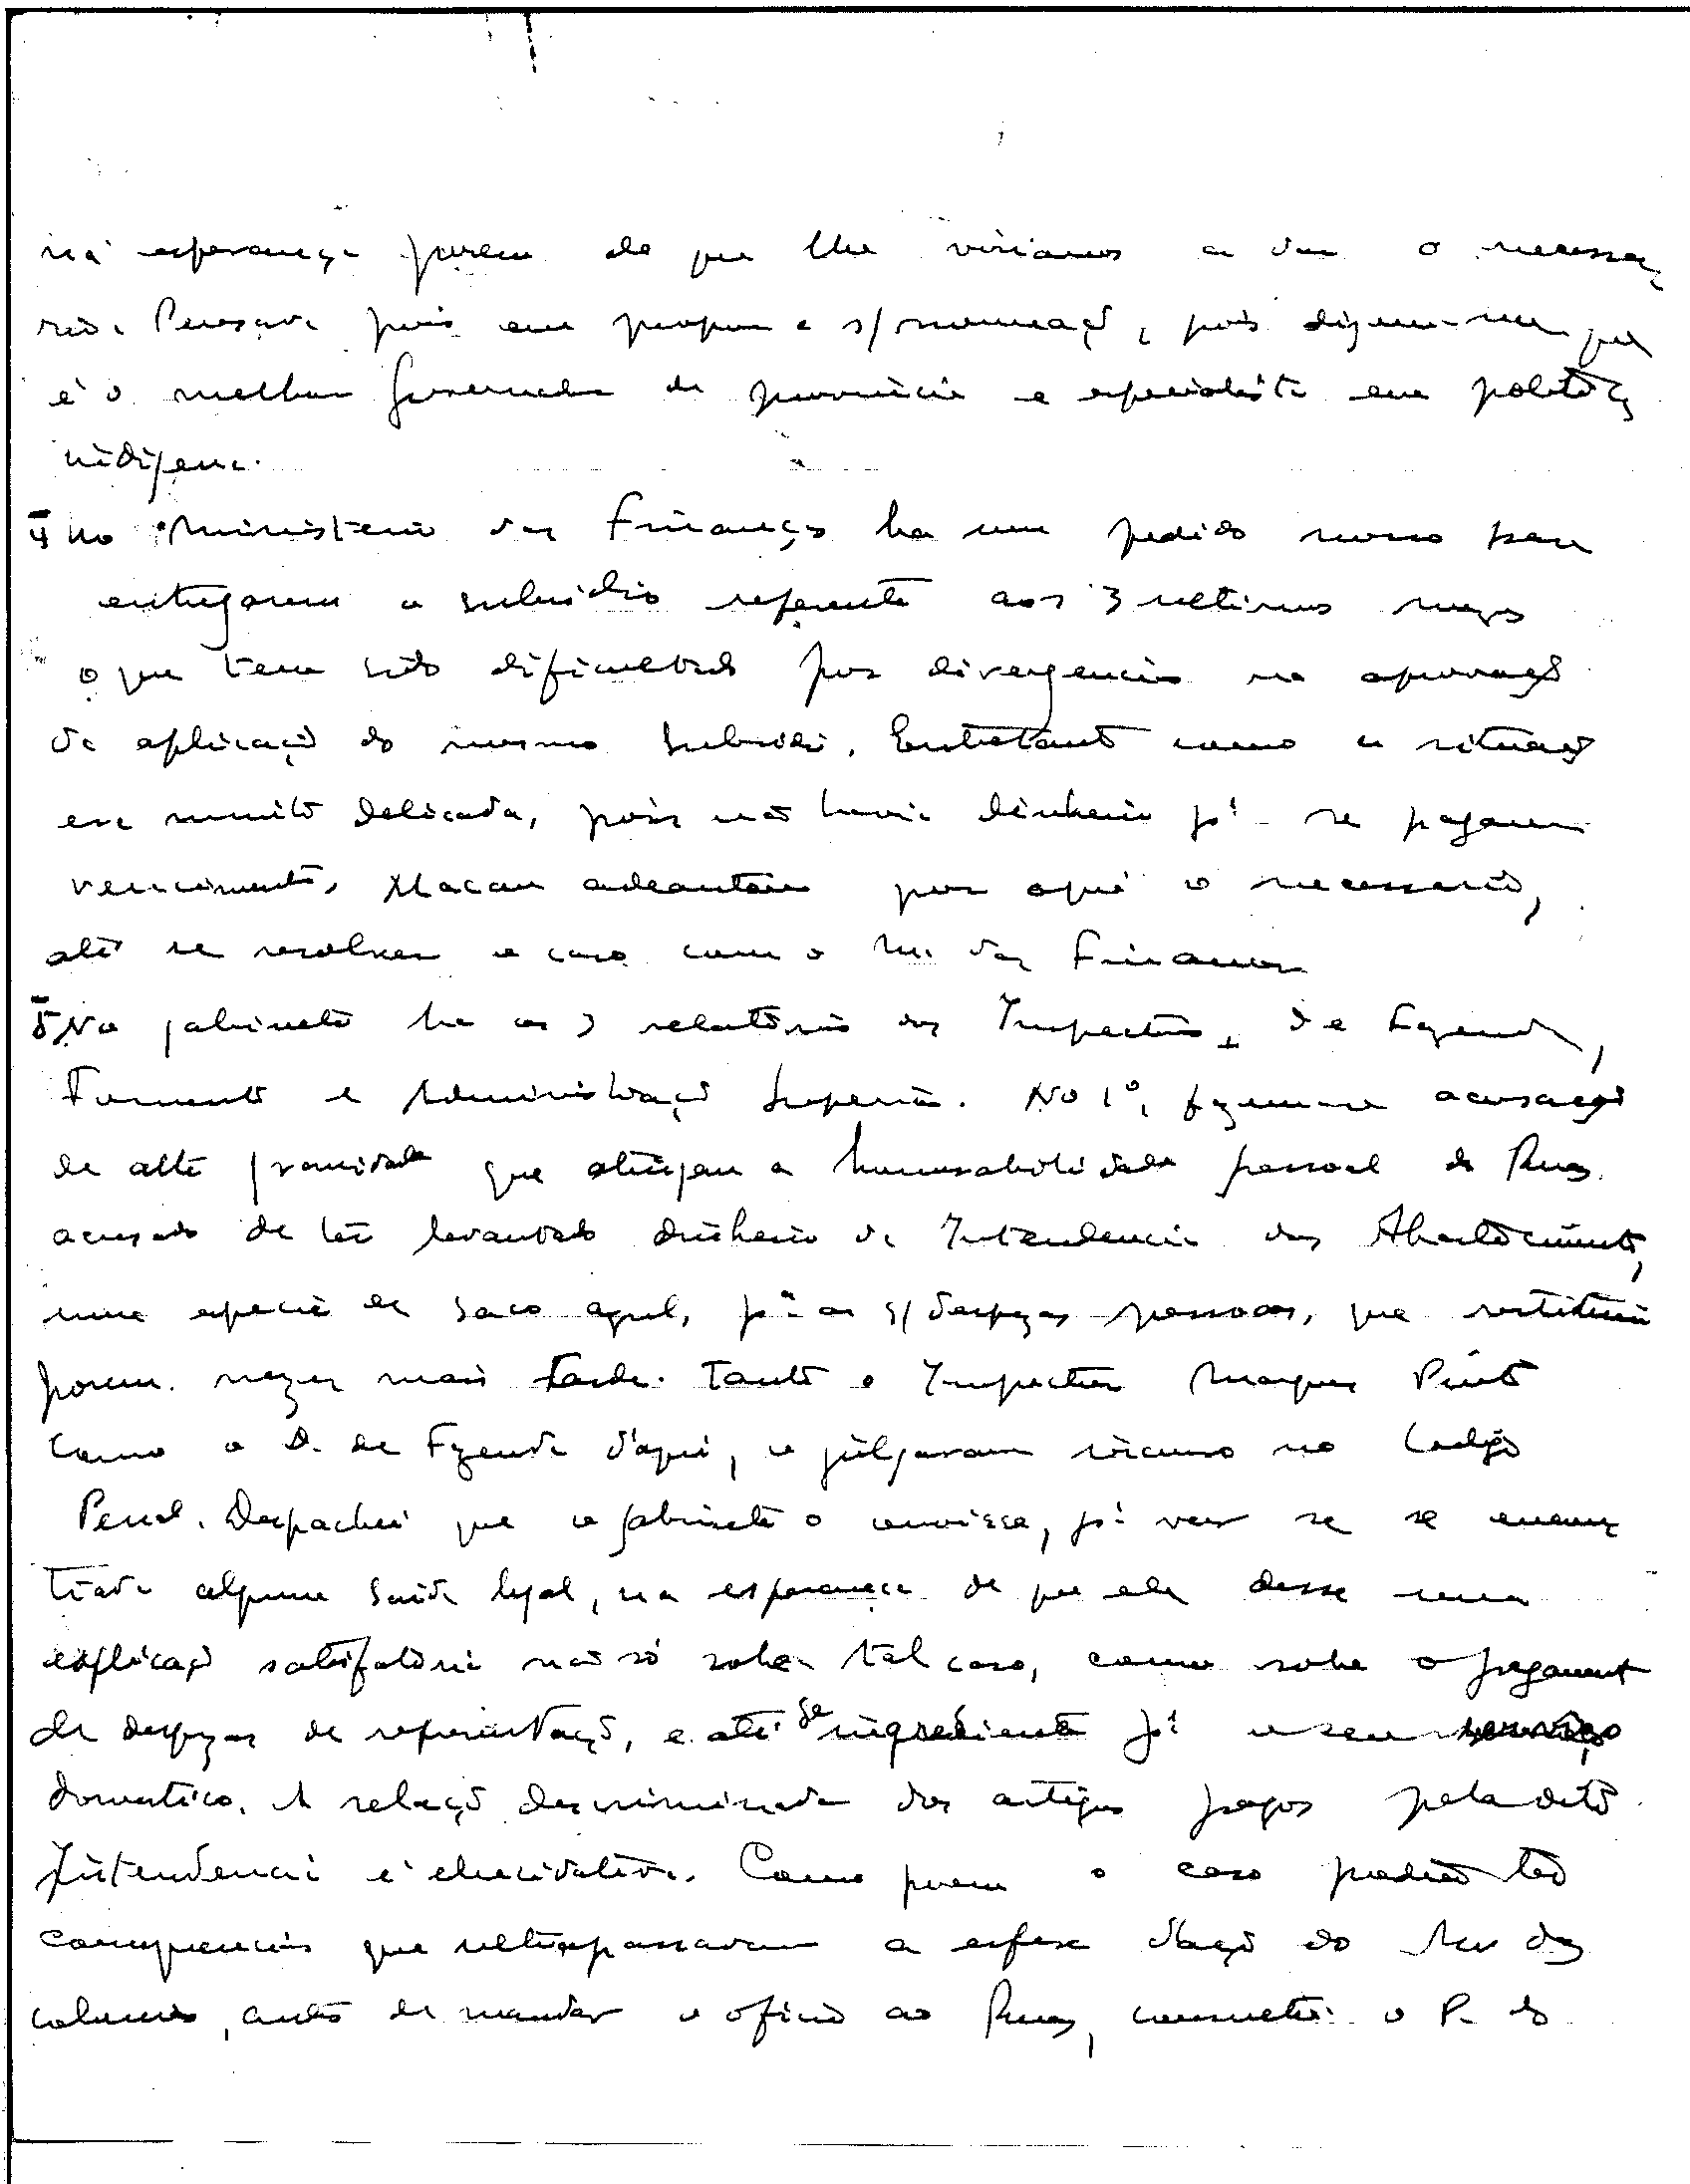 na esperança porem de que lhe viriamos a dar o necessa
rio. Pensava pois em propor a s/ nomeaçã, pois dizem-me que
é o melhor governador de provincia e especialista em politica
indigena.
4 No Ministerio das Finanças ha um pedido nosso para
entregarem o subsidio referente aos 3 ultimos mezes
o que tem sido dificultado por divergencias na aprovaçã
da aplicaçã do mesmo subsidio. Entretanto como a situaçã
era muito delicada, pois não havia dinheiro pª se pagarem
vencimentos, Macau adeantou por aqui o necessario,
até se resolver o caso com o M. das Finanças
5 No gabinete ha os 3 relatorios dos Inspectores de Fazenda,
Fomento e Administraçã Superior. No 1º, fazem-se acusações
de alta gravidade que atingem a honorabilidade pessoal do
acusado de ter levantado dinheiro da Intendencia dos Abastecimentos,
uma especie de saco azul, pª as s/ despezas pessoais, que restituiu
porem mezes mais tarde. Tanto o Inspector Marques Pinto
como o D. de Fazenda d'aqui, o julgaram incurso no Codigo
Penal. Despachei que o gabinete o ouvisse, pª ver se se encon
trava alguma saida legal, na esperança de que ele desse uma
explicaçã satisfatoria não só sobre tal caso, como sobre o pagamento
de despezas de representaçã, e até de ingredientes pª o seu serviço
domestico. A relaçã descriminada dos artigos pagos pela dita
Intendencia é elucidativa. Como porem o caso poderia ter
consequencias que ultrapassavam a esfera d'açã do Mⁿ das
colonias, antes de mandar o oficio ao consultei o P. do